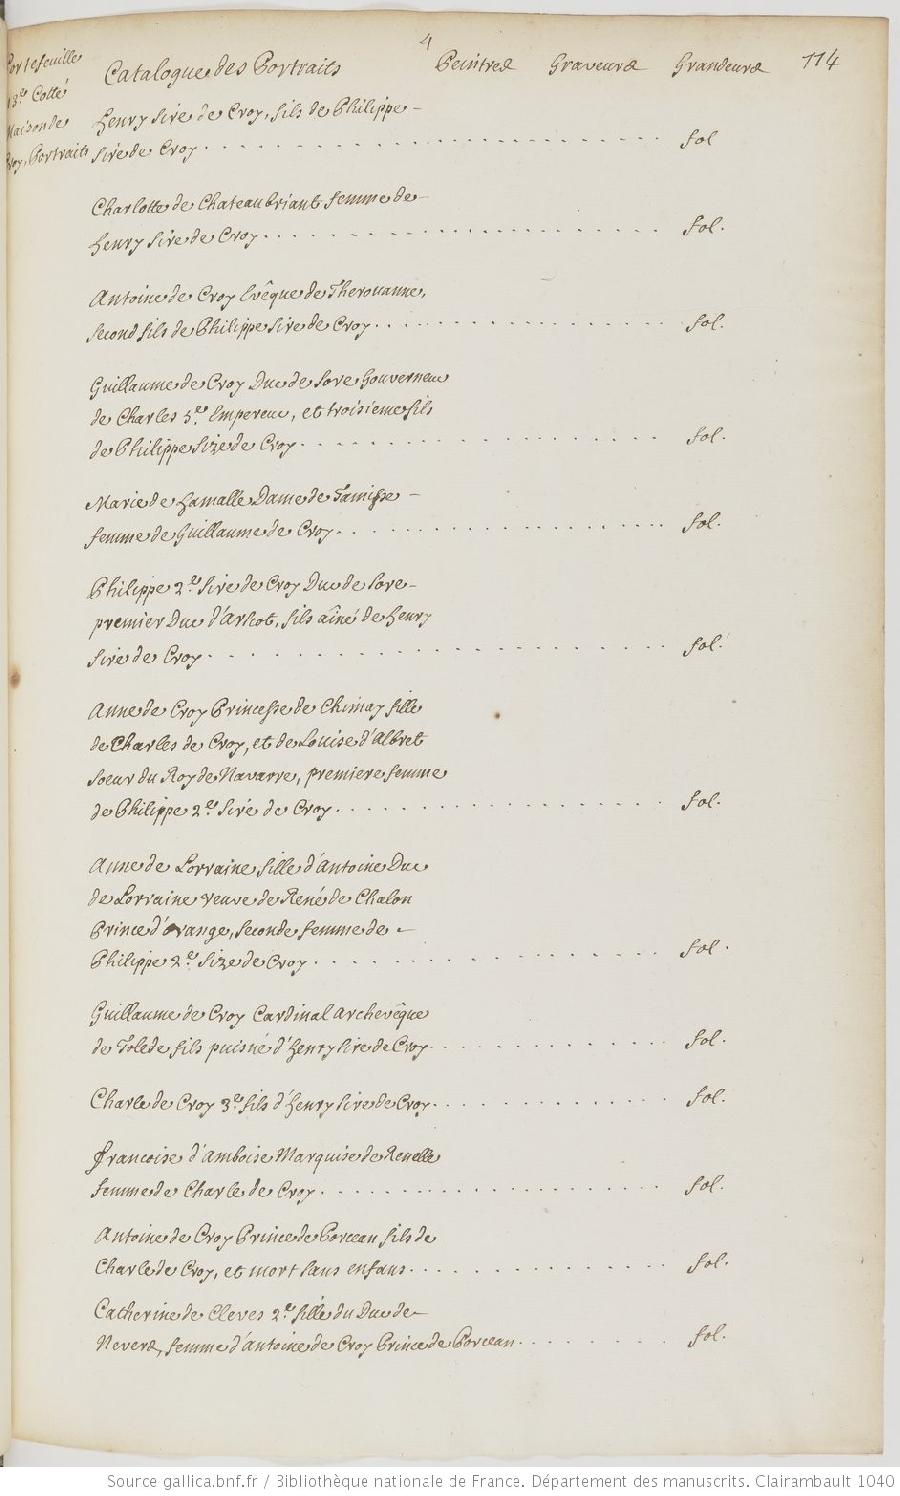 4
Portefeuille
13.e Cotté
Maison de
Croy, Portraits
Catalogue des Portraits Peintres Graveurs Grandeurs 114
Henry Sire de Croy, fils de Philippe
Sire de Croy . . . . . fol
Charlotte de Chateaubriant femme de
Henry Sire de Croy . . . . . fol.
Antoine de Croy Evêque de Therouanne,
Second fils de Philippe Sire de Croy . . . . . fol.
Guillaume de Croy Duc de Sore Gouverneur
de Charles 5.e Empereur, et troisieme fils
de Philippe Size de Croy . . . . . fol.
Marie de Hamalle Dame de Tamisse
femme de Guillaume de Croy . . . . . fol.
Philippe 2.e Sire de Croy Duc de Sore
premier Duc d'Arscot, fils aîné de Henry
Sire de Croy . . . . . fol.
Anne de Croy Princesse de Chimay fille
de Charles de Croy, et de Louise d'Albret
Soeur du Roy de Navarre, premiere femme
de Philippe 2.e Sire de Croy . . . . . fol.
Anne de Lorraine fille d'Antoine Duc
de Lorraine veuve de René de Chalon
Prince d'Orange, Seconde femme de
Philippe 2.e Size de Croy . . . . . fol.
Guillaume de Croy Cardinal Archevêque
de Tolede fils puisné d'Henry Sire de Croy . . . . . fol.
Charle de Croy 3.e fils d'Henry Sire de Croy . . . . . fol.
Francoise d'Amboise Marquise de Renelle
femme de Charle de Croy . . . . . fol.
Antoine de Croy Prince de Porcean fils de
Charle de Croy, et mort sans enfans . . . . . fol.
Catherine de Cleves 2.e fille du Duc de
Nevers, femme d'Antoine de Croy Prince de Porcean . . . . . fol.
Source gallica.bnf.fr / Bibliothèque nationale de France. Département des manuscrits. Clairambault 1040